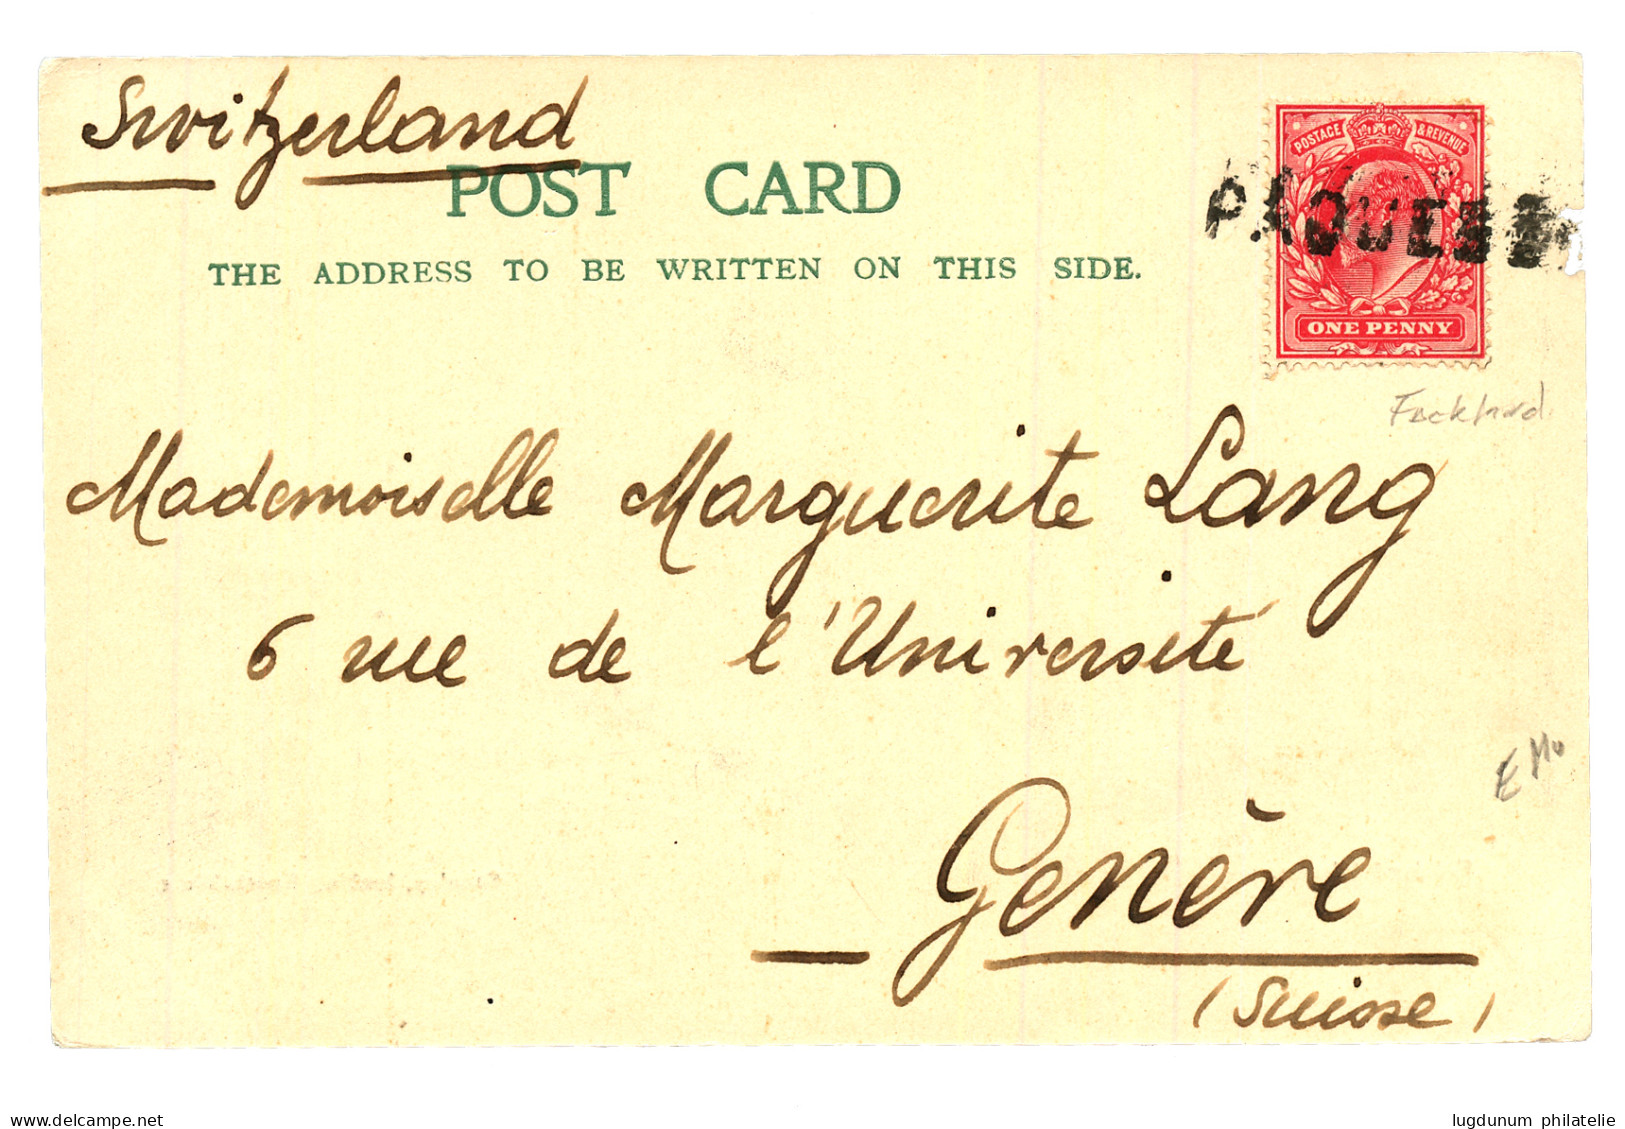 Switzerland
POST CARD
THE ADDRESS TO BE WRITTEN ON THIS SIDE.
POSTAGE & REVENUE
PAQUEB
ONE PENNY
Mademoiselle Marguerite Lang
6 rue de l'Université
Genève
(Suisse)
delcampe.net
lugdunum philatelie